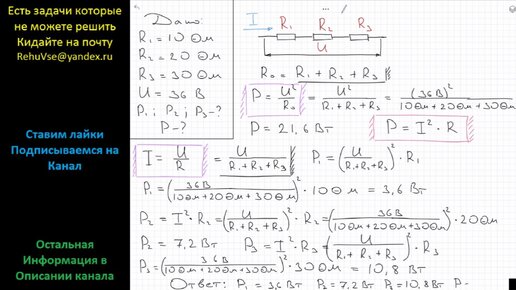 Есть задачи которые
не можете решить
Кидайте на почту
RehuVse@yandex.ru
Ставим лайки
Подписываемся на
Канал
Остальная
Информация в
Описании канала
Дано:
R₁ = 10 Ом
R₂ = 20 Ом
R₃ = 30 Ом
U = 36 В
P₁; P₂; P₃ - ?
P - ?
I R₁ R₂ R₃
U
R₀ = R₁ + R₂ + R₃
P = U²/R₀ = U²/(R₁ + R₂ + R₃) = (36 В)²/(10 Ом + 20 Ом + 30 Ом)
P = 21,6 Вт P = I² · R
I = U/R = U/(R₁ + R₂ + R₃) P₁ = (U/(R₁ + R₂ + R₃))² · R₁
P₁ = (36 В/(10 Ом + 20 Ом + 30 Ом))² · 10 Ом = 3,6 Вт
P₂ = I² · R₂ = (U/(R₁ + R₂ + R₃))² · R₂ = (36 В/(10 Ом + 20 Ом + 30 Ом))² · 20 Ом
P₂ = 7,2 Вт P₃ = I² · R₃ = (U/(R₁ + R₂ + R₃))² · R₃
P₃ = (36 В/(10 Ом + 20 Ом + 30 Ом))² · 30 Ом = 10,8 Вт
Ответ: P₁ = 3,6 Вт P₂ = 7,2 Вт P₃ = 10,8 Вт P -